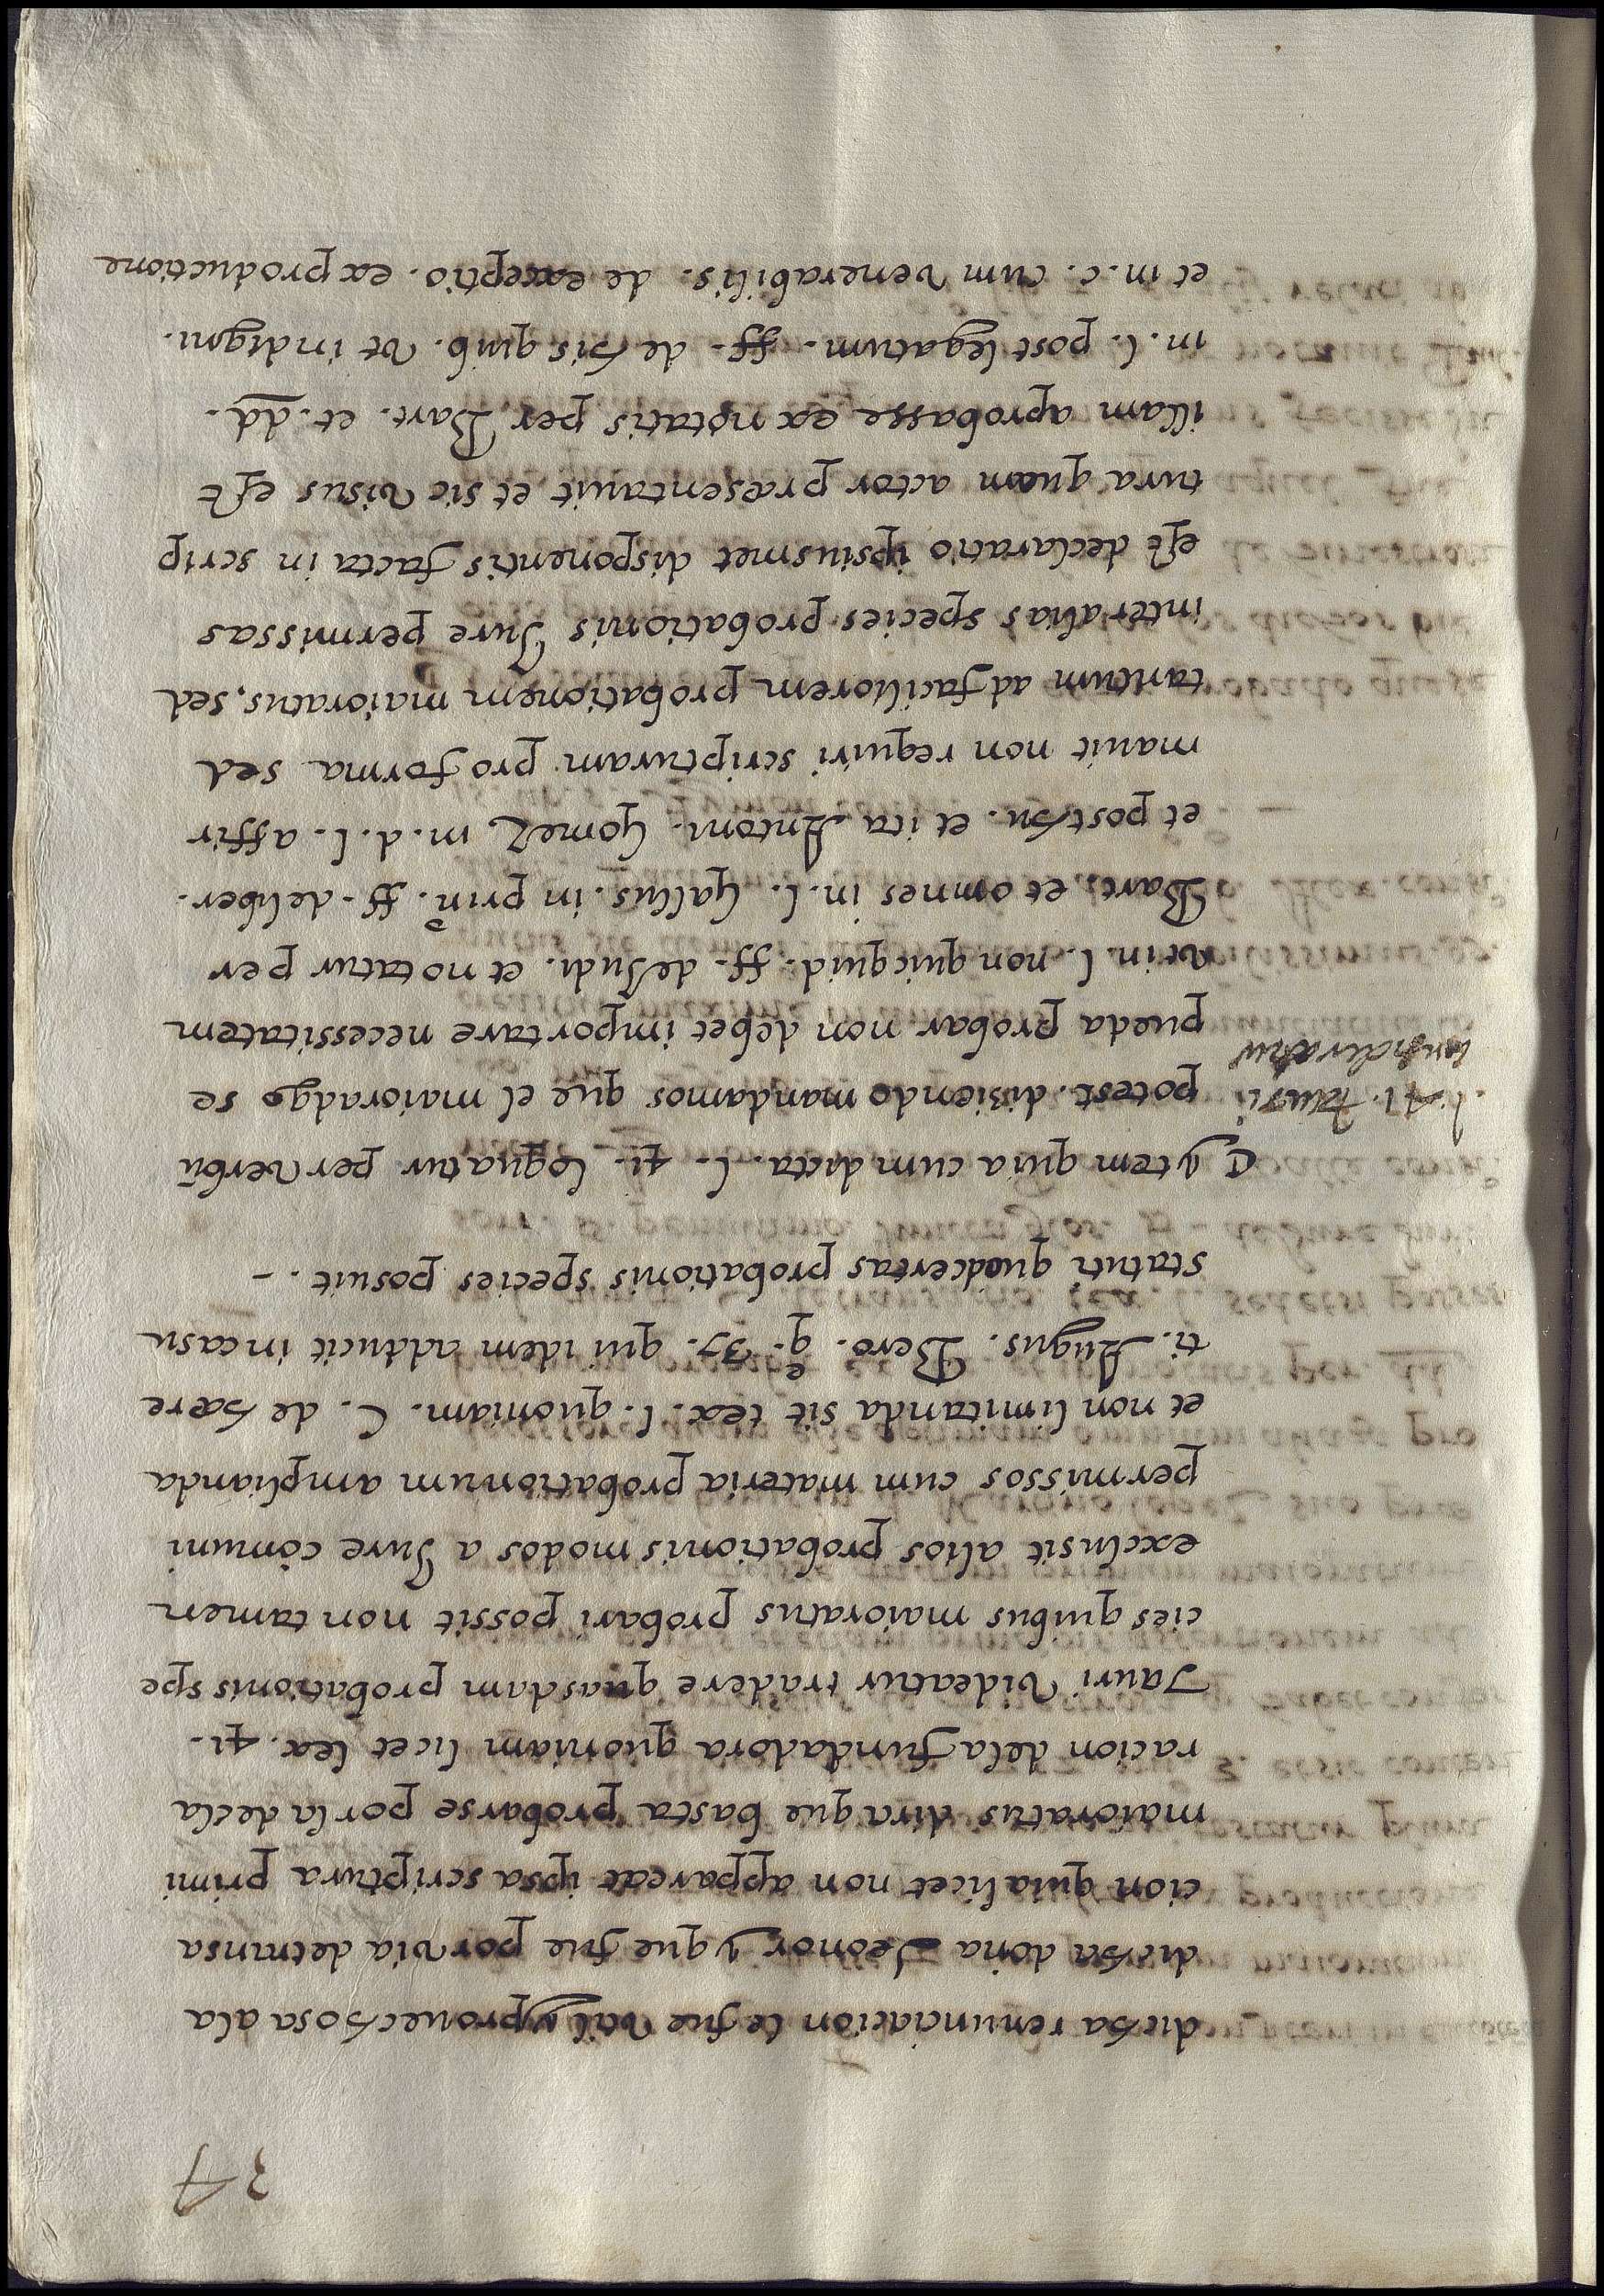 34
dicha renunciacion le fue vtil y prouechosa a la
dicha doña Leonor y que fue por via de transa
cion quia licet non appareat ipsa scriptura primi
maioratus dira que basta probarse por la decla
racion dela fundadora quoniam licet lex. 41.
Tauri videatur tradere quasdam probationis spe
cies quibus maioratus probari possit non tamen
exclusit alios probationis modos a Jure comuni
permissos cum materia probationum amplianda
et non limitanda sit tex. l. quoniam. C. de hære
ti. Augus. Bero. q. 37. qui idem adducit in casu
statuti quod certas probationis species posuit. -
Ytem quia cum dicta. l. 41. loquatur per verbũ
potest. diziendo mandamos que el maioradgo se
l. 41. tauri
pueda probar non debet importare necessitatem
vt in. l. non quicquid. ff. de Judi. et notatur per
Bart. et omnes in. l. Gallus. in prin. ff. de liber.
et posthu. et ita Antoni. Gomez. in. d. l. affir
mauit non requiri scripturam pro forma sed
tantum ad faciliorem probationem maioratus. sed
inter alias species probationis Jure permissas
est declaratio ipsiusmet disponentis facta in scrip
tura quam actor præsentauit et sic visus est
illam aprobasse ex notatis per Bart. et. dd.
in. l. post legatum. ff. de his quib. vt indigni.
et in. c. cum venerabilis. de exceptio. ex productione